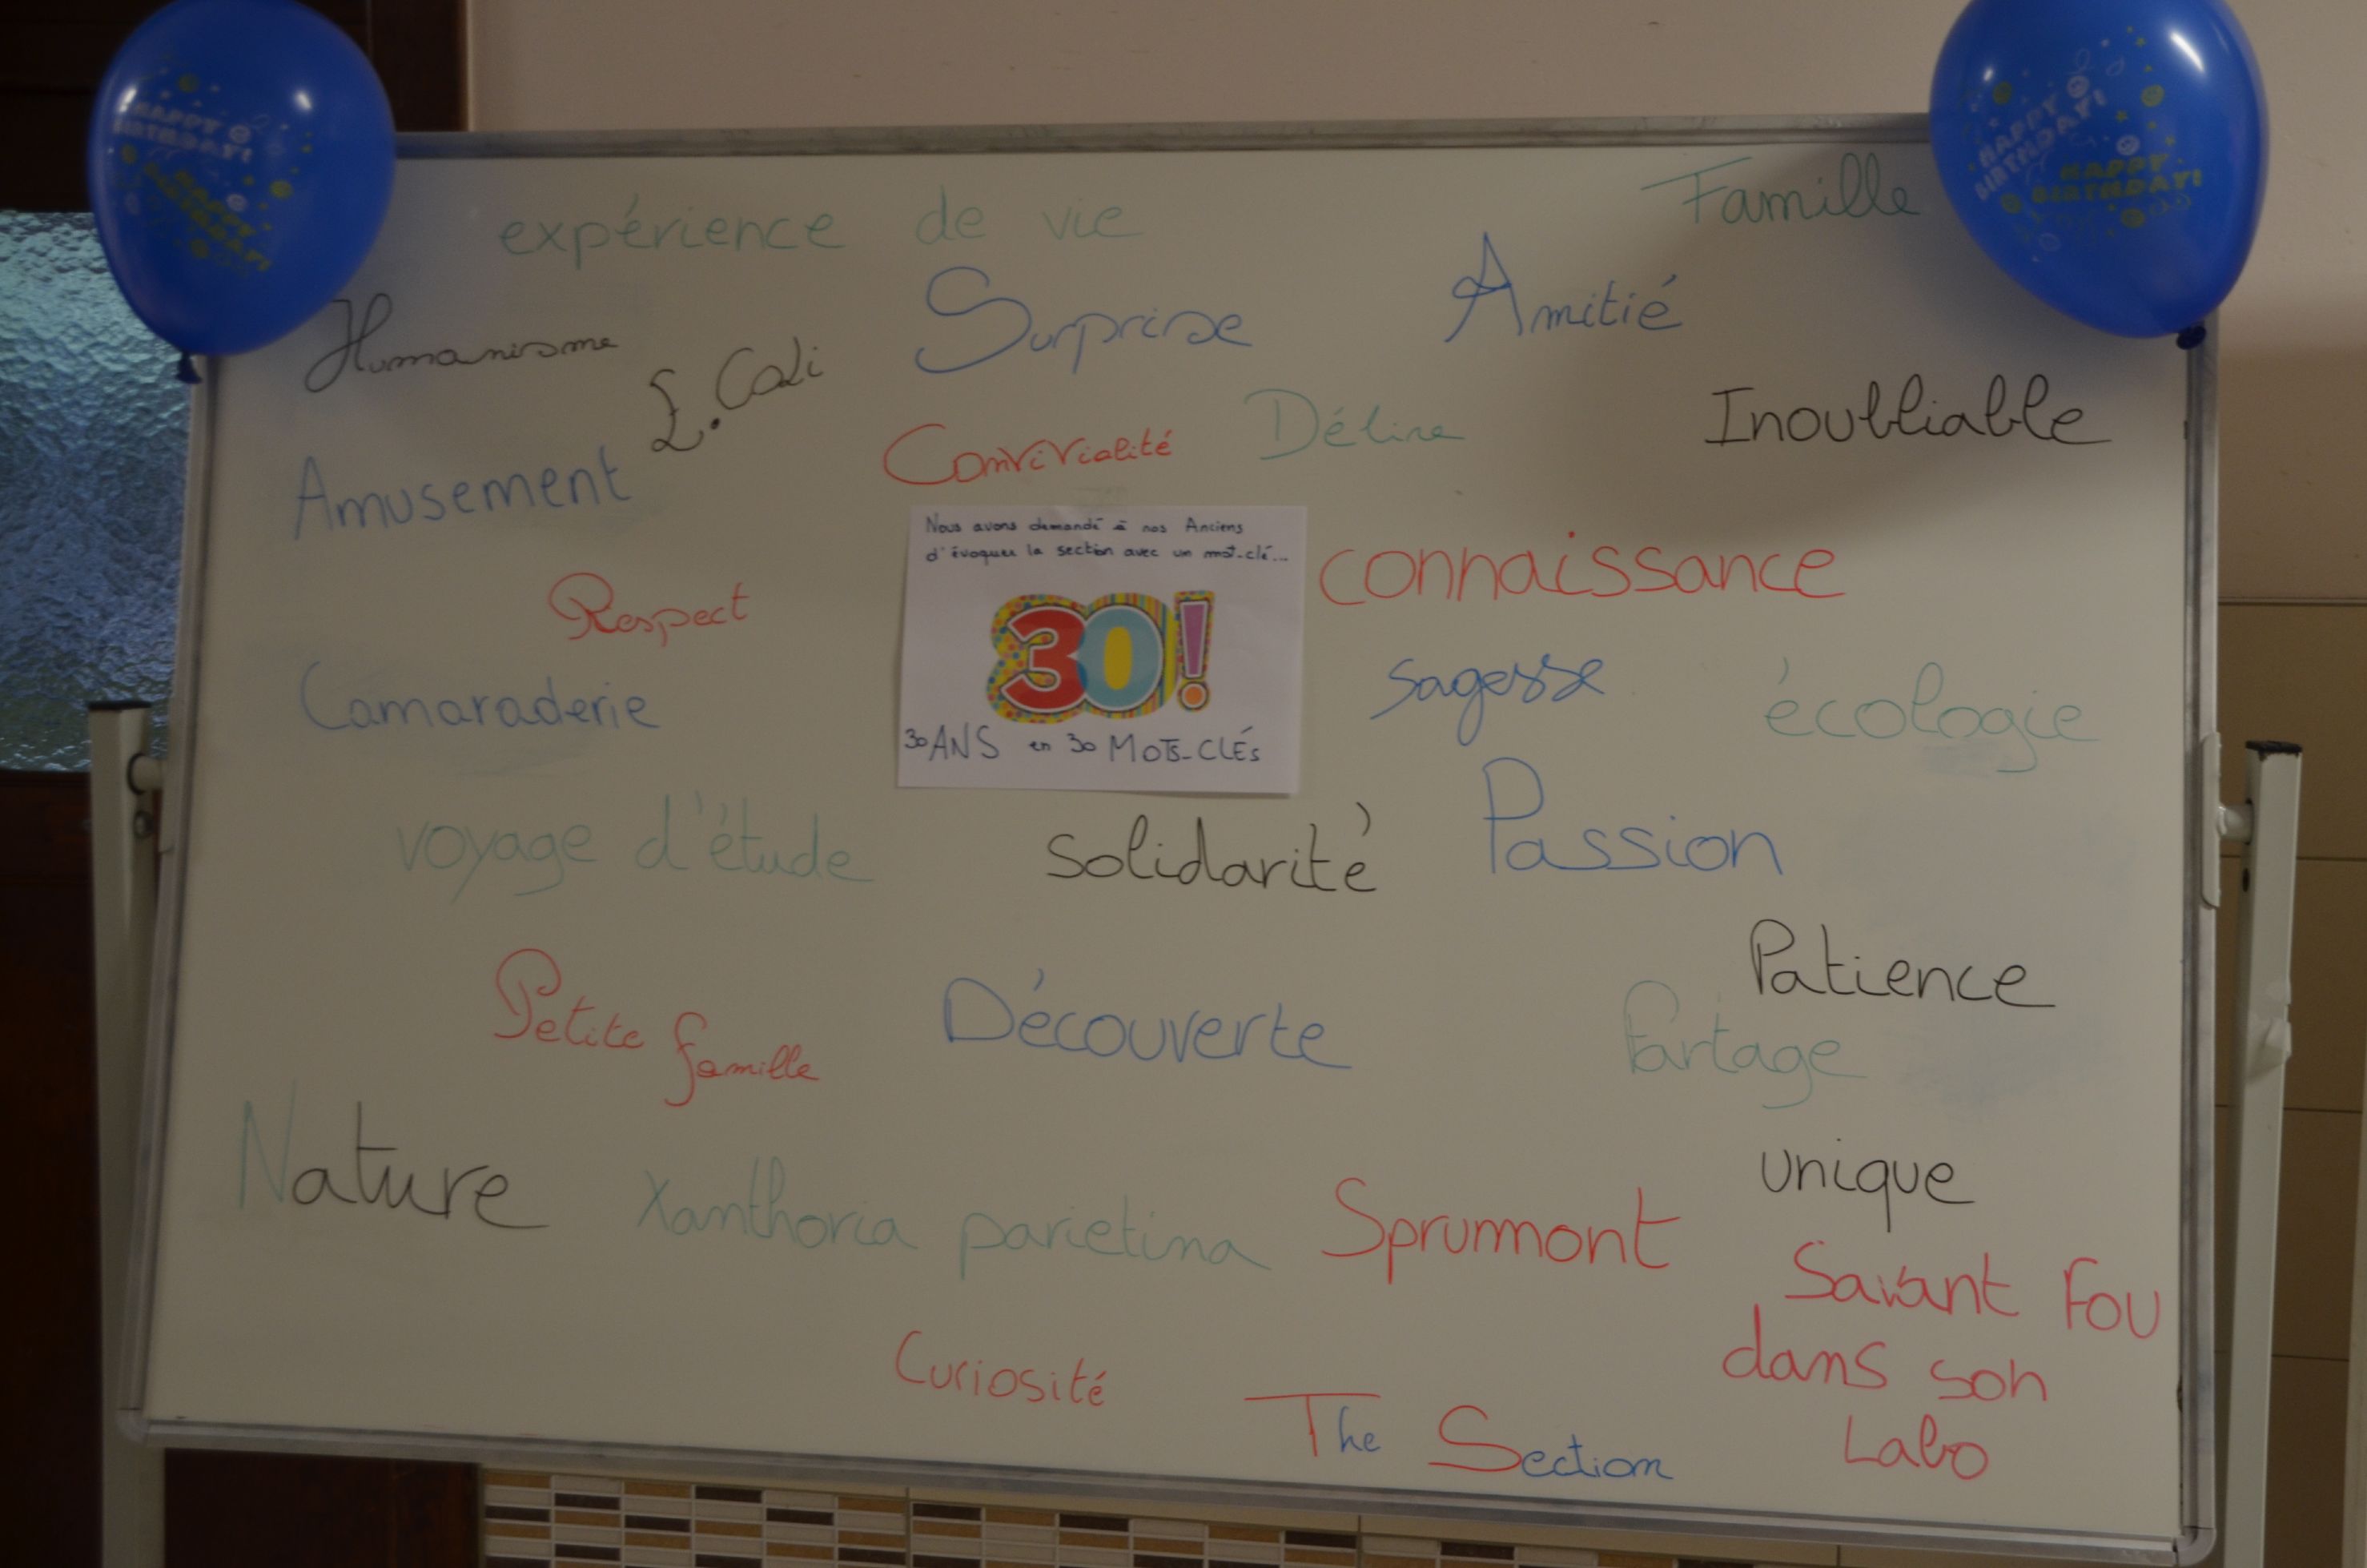 HAPPY
BIRTHDAY!
HAPPY
BIRTHDAY!
HAPPY
BIRTHDAY!
HAPPY
BIRTHDAY!
expérience de vie
Famille
Humanisme
E. Coli
Surprise
Amitié
Amusement
Convivialité
Délire
Inoubliable
Nous avons demandé à nos Anciens
d'évoquer la section avec un mot-clé...
30!
30 ANS en 30 MOTS-CLÉS
Respect
connaissance
Camaraderie
sagesse
écologie
voyage d'étude
solidarité
Passion
Petite famille
Découverte
Patience
Partage
Nature
Xanthoria parietina
Sprumont
unique
Savant Fou
dans son
Labo
Curiosité
The Section